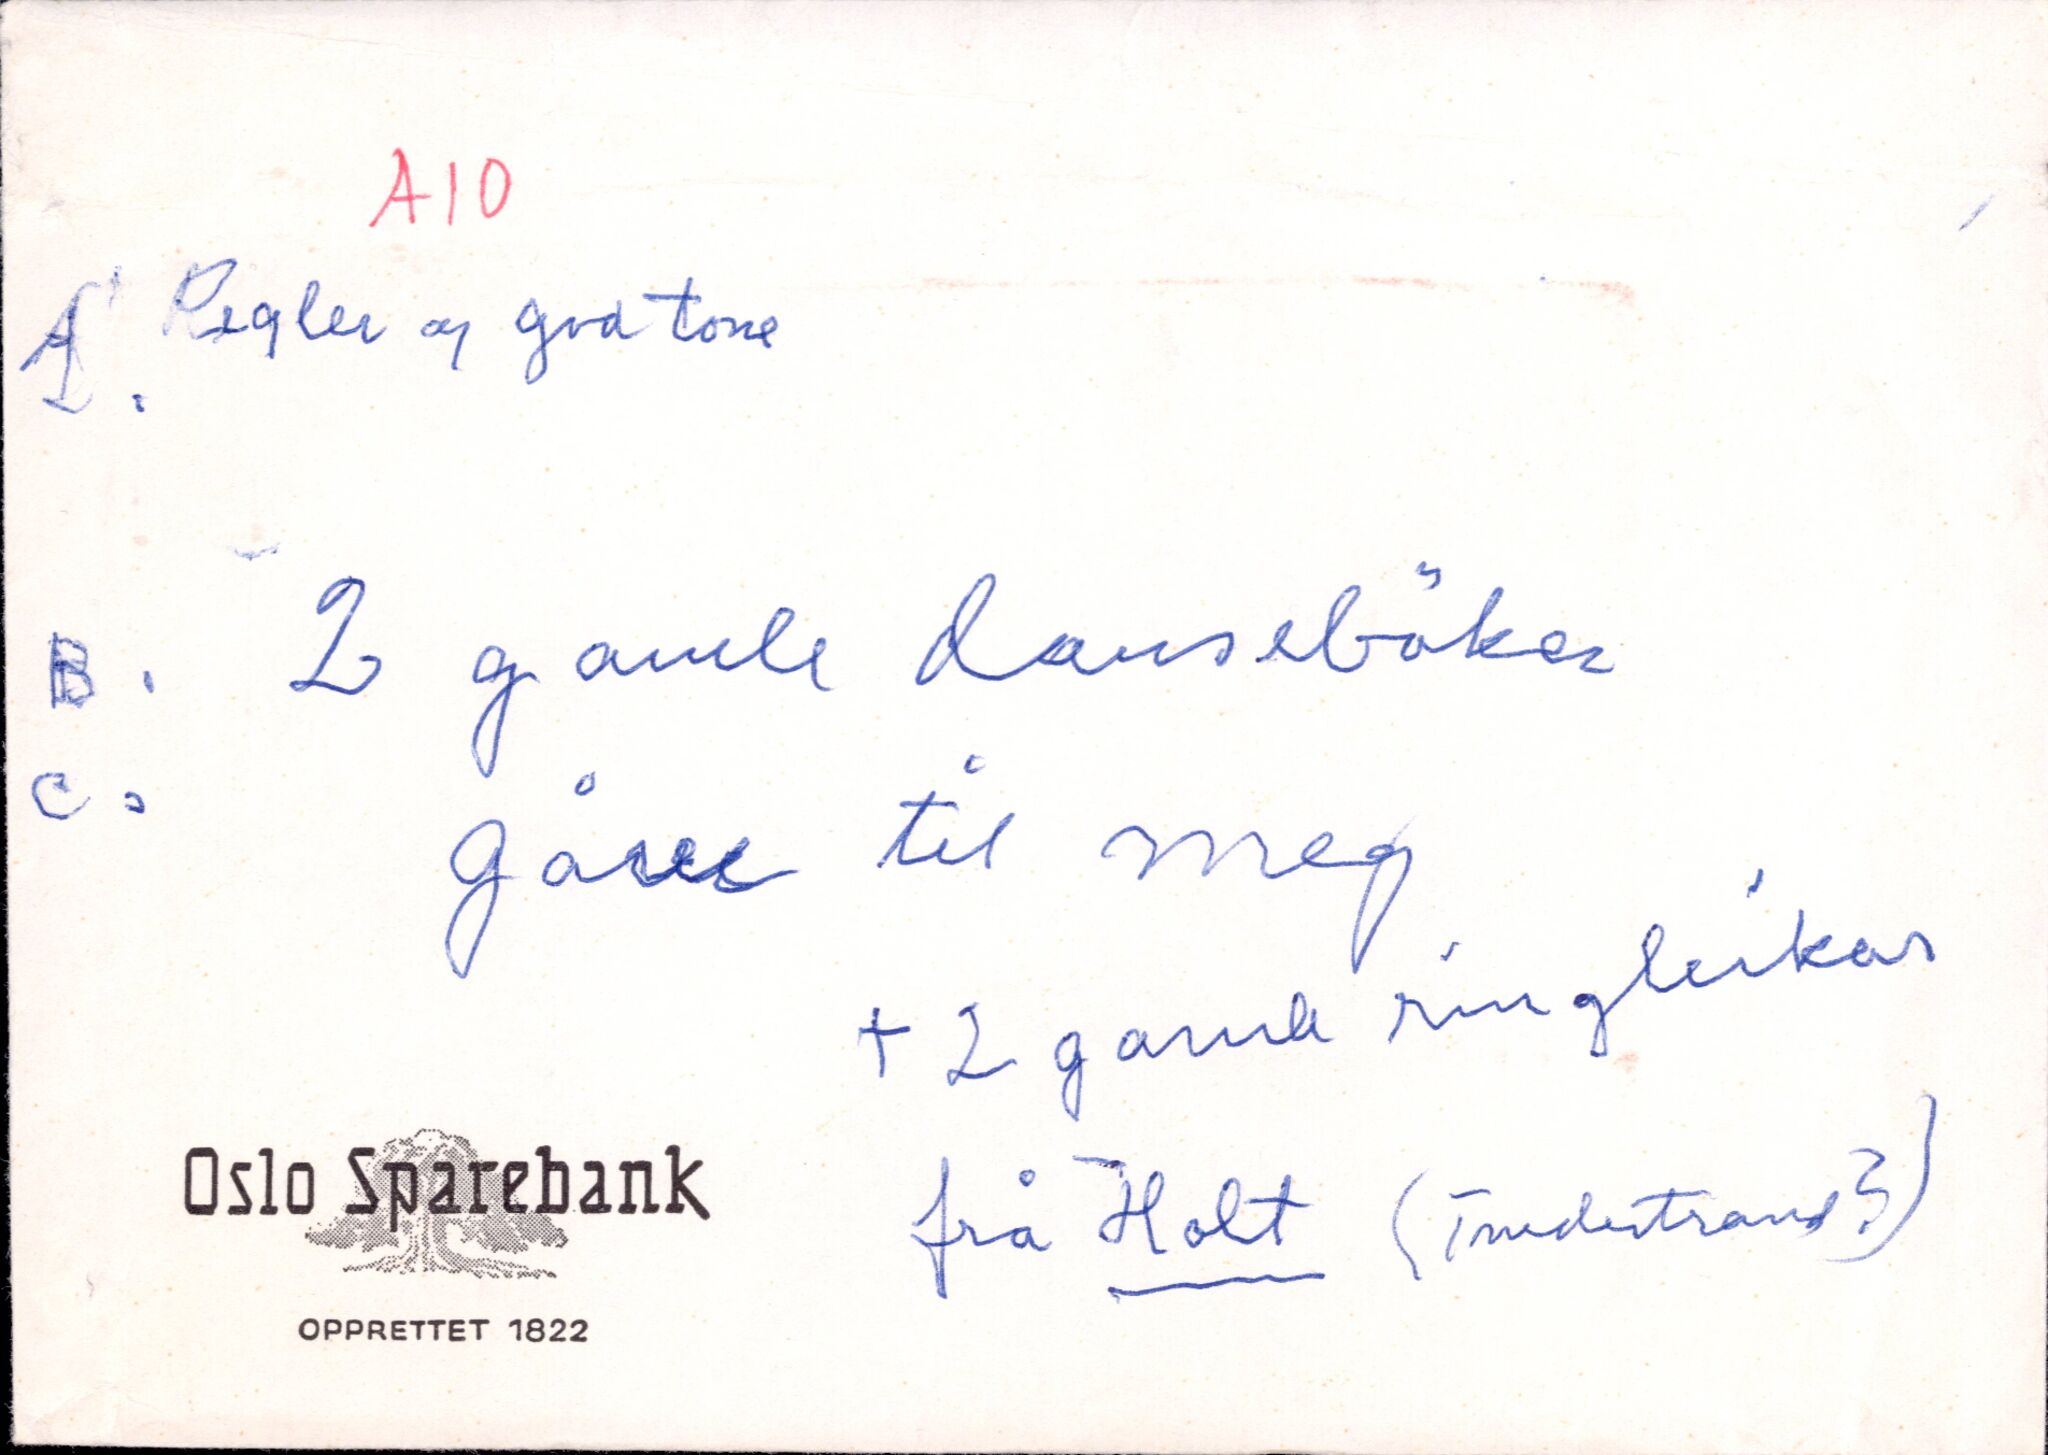 A10
A. Regler og god tone
B. 2 gamle danseböker
C. gåve til meg
+ 2 gamle ringleikar
frå Holt (Tvedestrand?)
Oslo Sparebank
OPPRETTET 1822